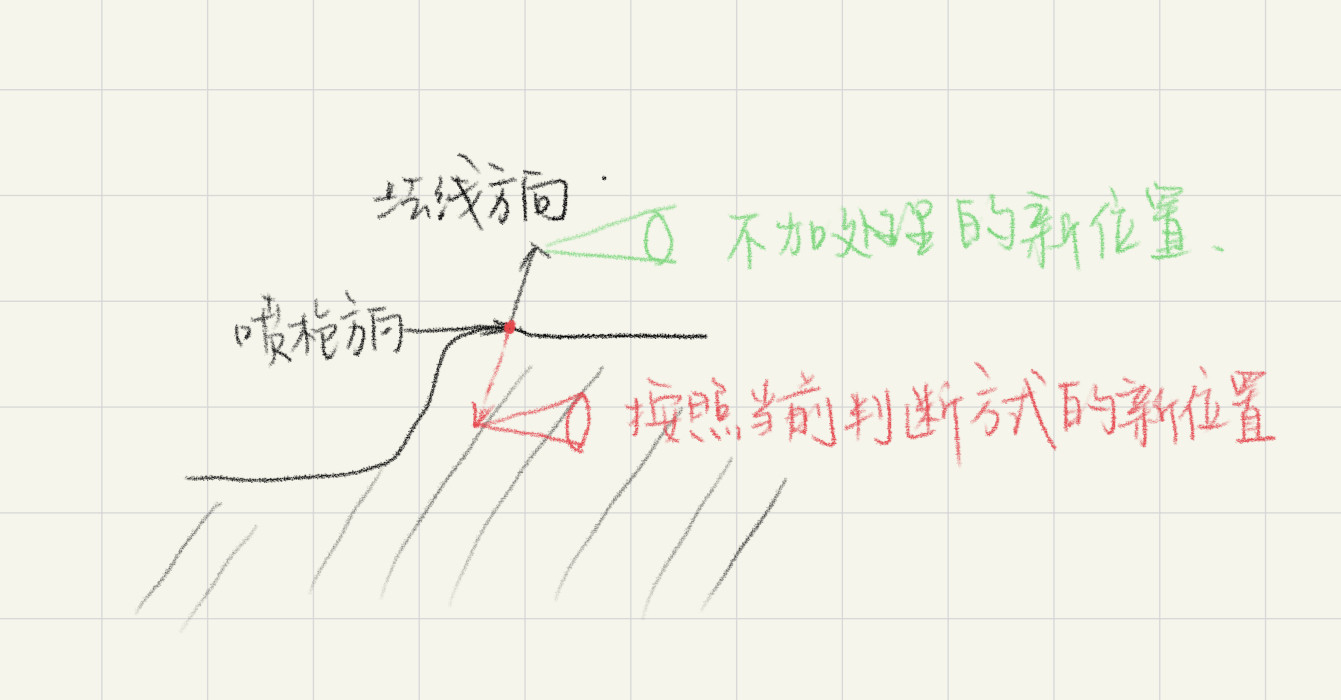 法线方向
不加处理的新位置、
喷枪方向
按照当前判断方式的新位置